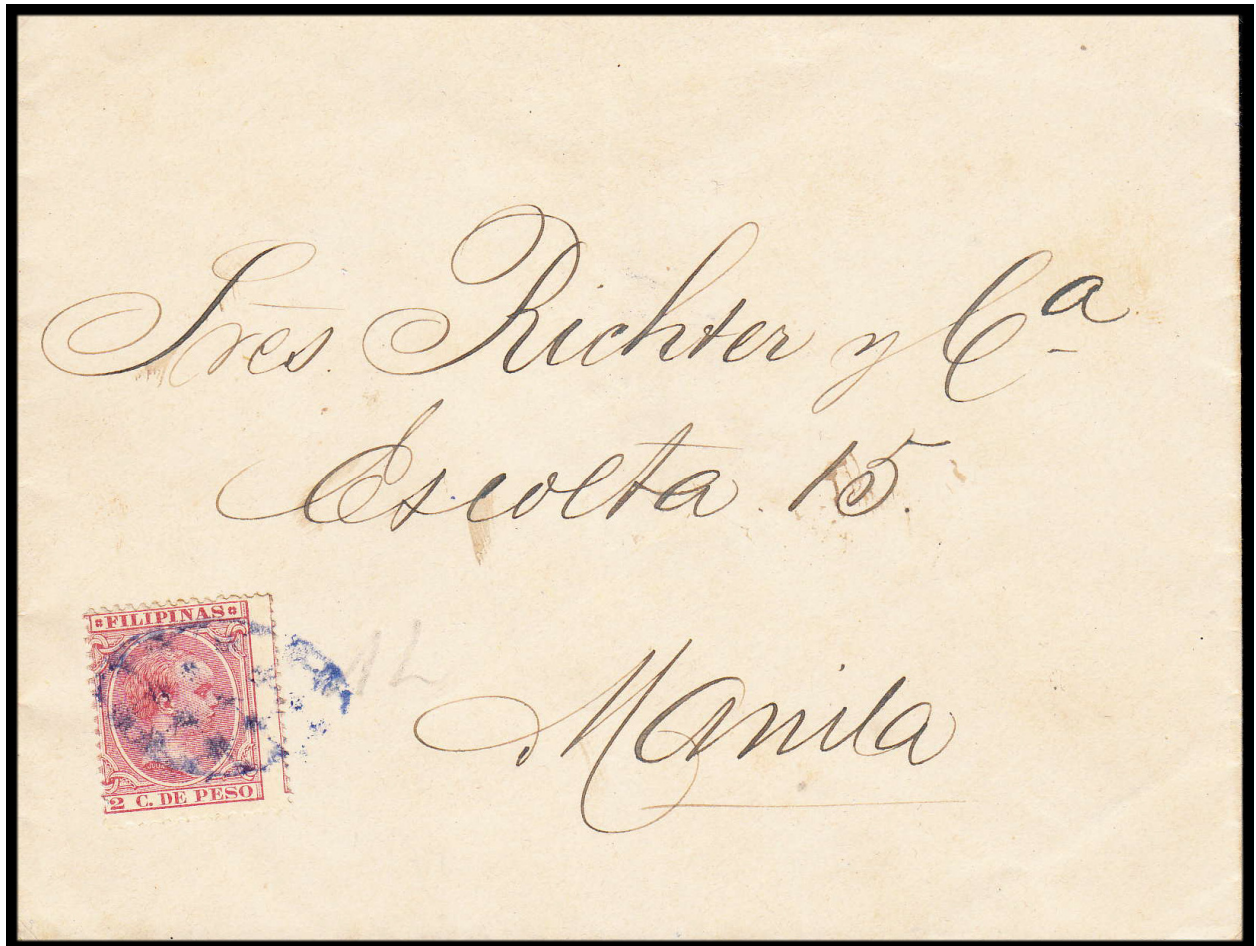 Sres. Richter y Cª
Escolta 15.
Manila
FILIPINAS
2 C. DE PESO